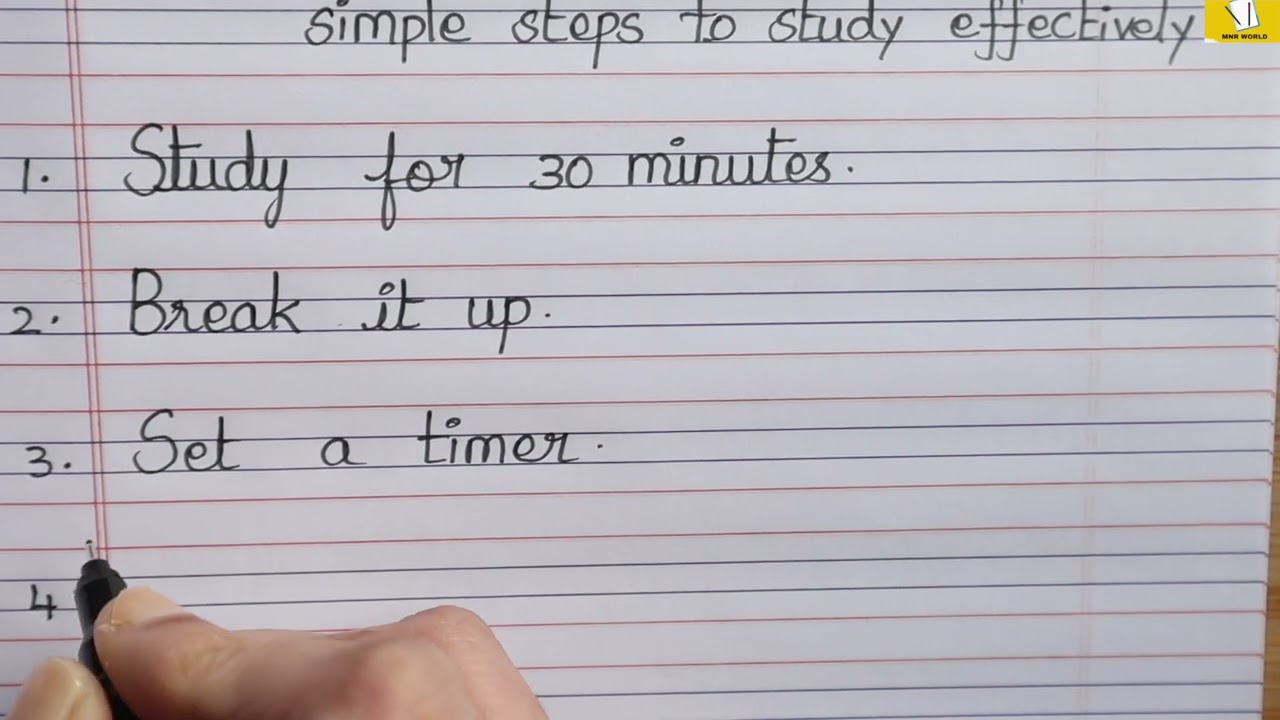 simple steps to study effectively
MNR WORLD
1. Study for 30 minutes.
2. Break it up.
3. Set a timer.
4